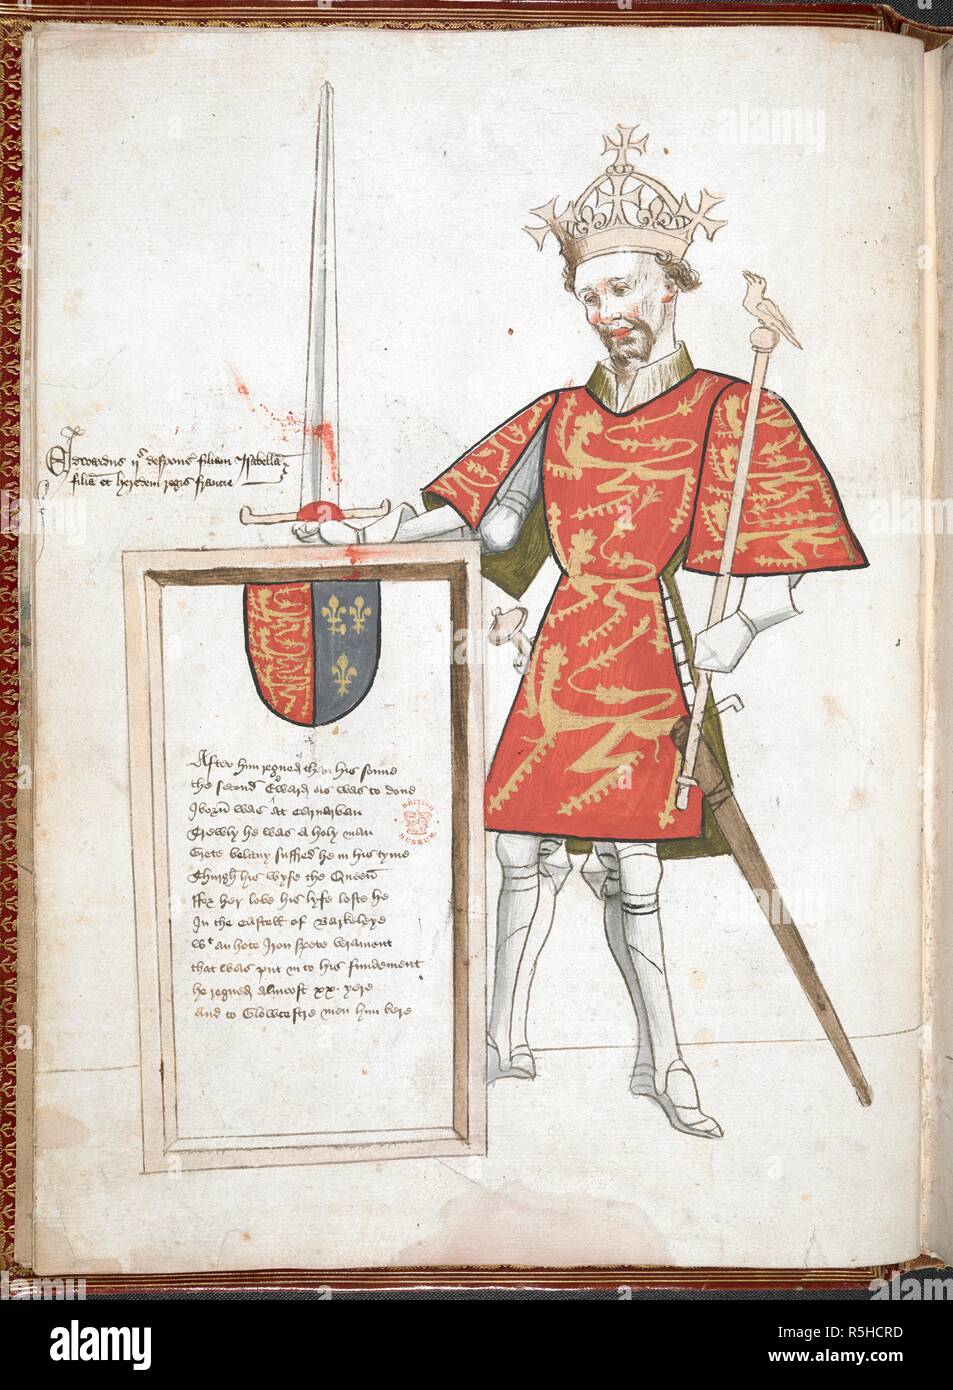 Edwardus ijs desponst filiam Isabellam
filia et heredem regis francie
After him regned then his sonne
the second Edward as was to done
Iborn was at Carnarvan
Trewly he was a holy man
Grete velany suffred he in his tyme
Thurgh his wyfe the Quene
ffor her love his lyfe loste he
In the Castell of Barkeleye
wt an hote Iron spete verament
that was put in to his fundement
he regned almost xx. yere
And to Glowcestre men him bere
BRITISH
MUSEUM
alamy
alamy
alamy
Image ID: R5HCRD
www.alamy.com